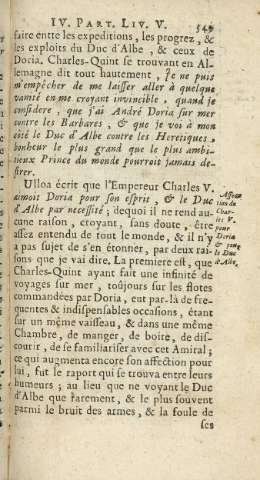 IV. PART. LIV. V. 549
faire entte les expeditions, les progrez, &
les exploits du Duc d'Albe, & ceux de
Doria. Charles-Quint se trouvant en Al-
lemagne dit tout hautement, Je ne puis
m'empêcher de me laisser aller à quelque
vanité en me croyant invincible, quand je
considere, que j'ai André Doria sur mer
contre les Barbares, & que je voi à mon
côté le Duc d'Albe contre les Heretiques,
bonheur le plus grand que le plus ambi-
tieux Prince du monde pourroit jamais de-
sirer.
Ulloa écrit que l'Empereur Charles V.
aimoit Doria pour son esprit, & le Duc
d'Albe par necessité; dequoi il ne rend au-
cune raison, croyant, sans doute, être
assez entendu de tout le monde, & il n'y
a pas sujet de s'en étonner, par deux rai-
sons que je vai dire. La premiere est, que
Charles-Quint ayant fait une infinité de
voyages sur mer, toûjours sur les flotes
commandées par Doria, eut par-là de fre-
quentes & indispensables occasions, étant
sur un même vaisseau, & dans une même
Chambre, de manger, de boire, de dis-
courir, de se familiariser avec cet Amiral;
ce qui augmenta encore son affection pour
lui, fut le raport qui se trouva entre leurs
humeurs; au lieu que ne voyant le Duc
d'Albe que rarement, & le plus souvent
parmi le bruit des armes, & la foule de
ses
Affec-
tion de
Char-
les V.
pour
Doria
& pour
le Duc
d'Albe.